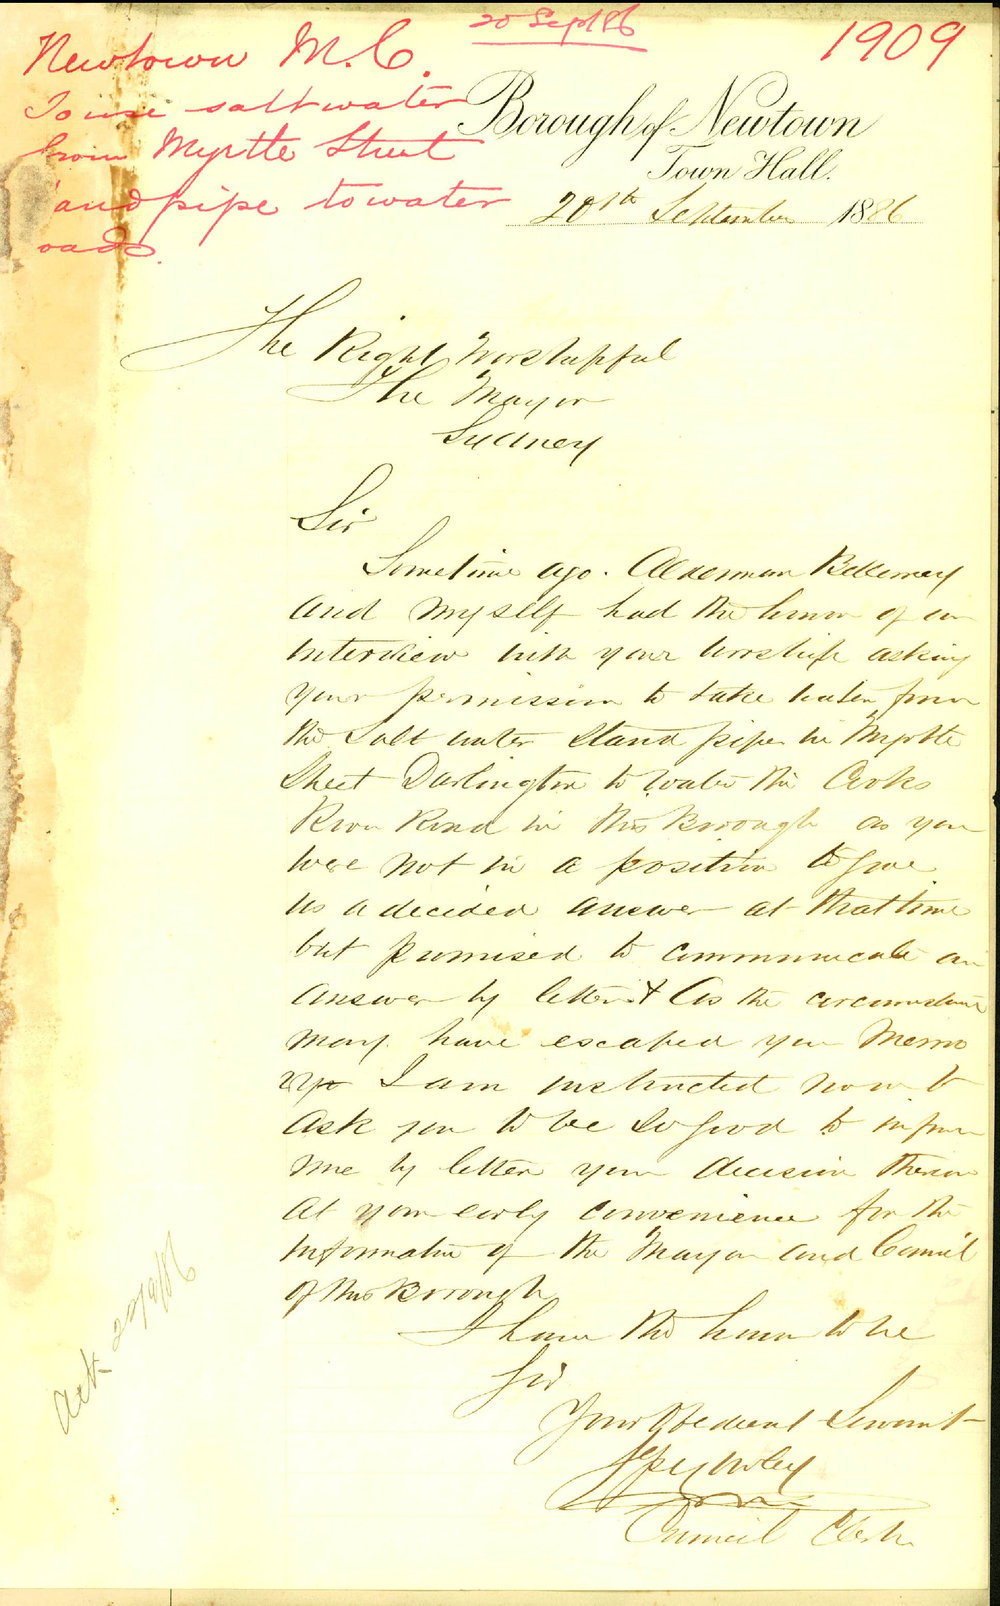 20 Sept 86
1909
Newtown M.C.
To use salt water
from Myrtle Street
'and pipe to water
oads.
Borough of Newtown
Town Hall.
20th September 1886
The Right Worshipful
The Mayor
Sydney
Sir
Sometime ago. Alderman Bellemey
and myself had the honor of an
Interview with your Worship asking
your permission to take water from
the Salt water Stand pipe in Myrtle
Street Darlington to water the Cooks
River Road in this Borough as you
were not in a position to give
us a decided answer at that time
but promised to communicate an
answer by letter & As the circumstance
may have escaped your Memo
ry I am instructed now to
ask you to be so good to inform
me by letter your decision thereon
at your early convenience for the
Information of the Mayor and Council
of this Borough
I have the honor to be
Sir
Your Obedient Servant
Council Clerk
Ack 22/9/86